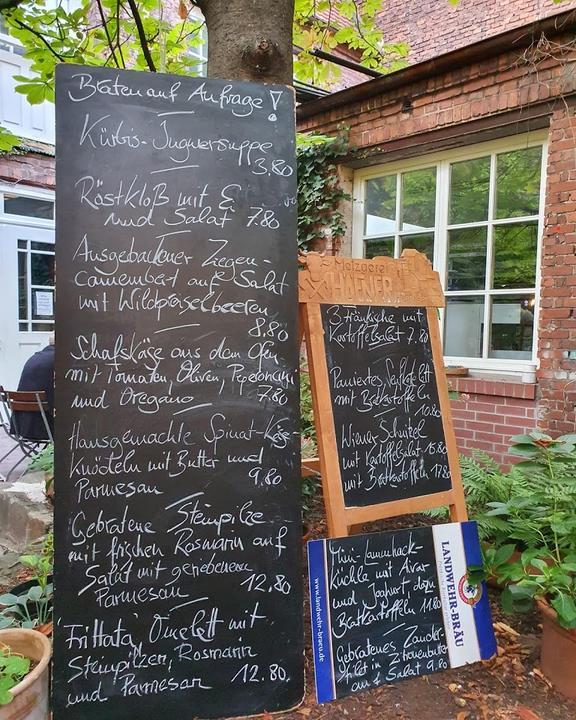 Braten auf Anfrage!
Kürbis-Ingwersuppe
3.80
Röstkloß mit E
und Salat 7.80
Ausgebackener Ziegen-
camembert auf Salat
mit Wildpreiselbeeren
8.80
Schafskäse aus dem Ofen
mit Tomaten, Oliven, Peperoncini
und Oregano 7.80
Hausgemachte Spinat-Käse
knödeln mit Butter und
Parmesan 9,80
Gebratene Steinpilze
mit frischen Rosmarin auf
Salat mit geriebenem
Parmesan 12,80
'Frittata' Omelett mit
Steinpilzen, Rosmarin
und Parmesan 12.80.
Metzgerei
HAFNER
3 fränkische mit
Kartoffelsalat 7.80
Paniertes
mit Bratkartoffeln 10.80
Wiener Schnitzel
mit Kartoffelsalat 15.80
mit Bratkartoffeln 17.80
Mini-Lammhack-
küchle mit Aivar
und Joghurt dazu
Bratkartoffeln 11.80
Gebratenes Zander-
filet in Zitronenbutter
auf Salat 9.80
www.landwehr-braeu.de
LANDWEHR-BRÄU